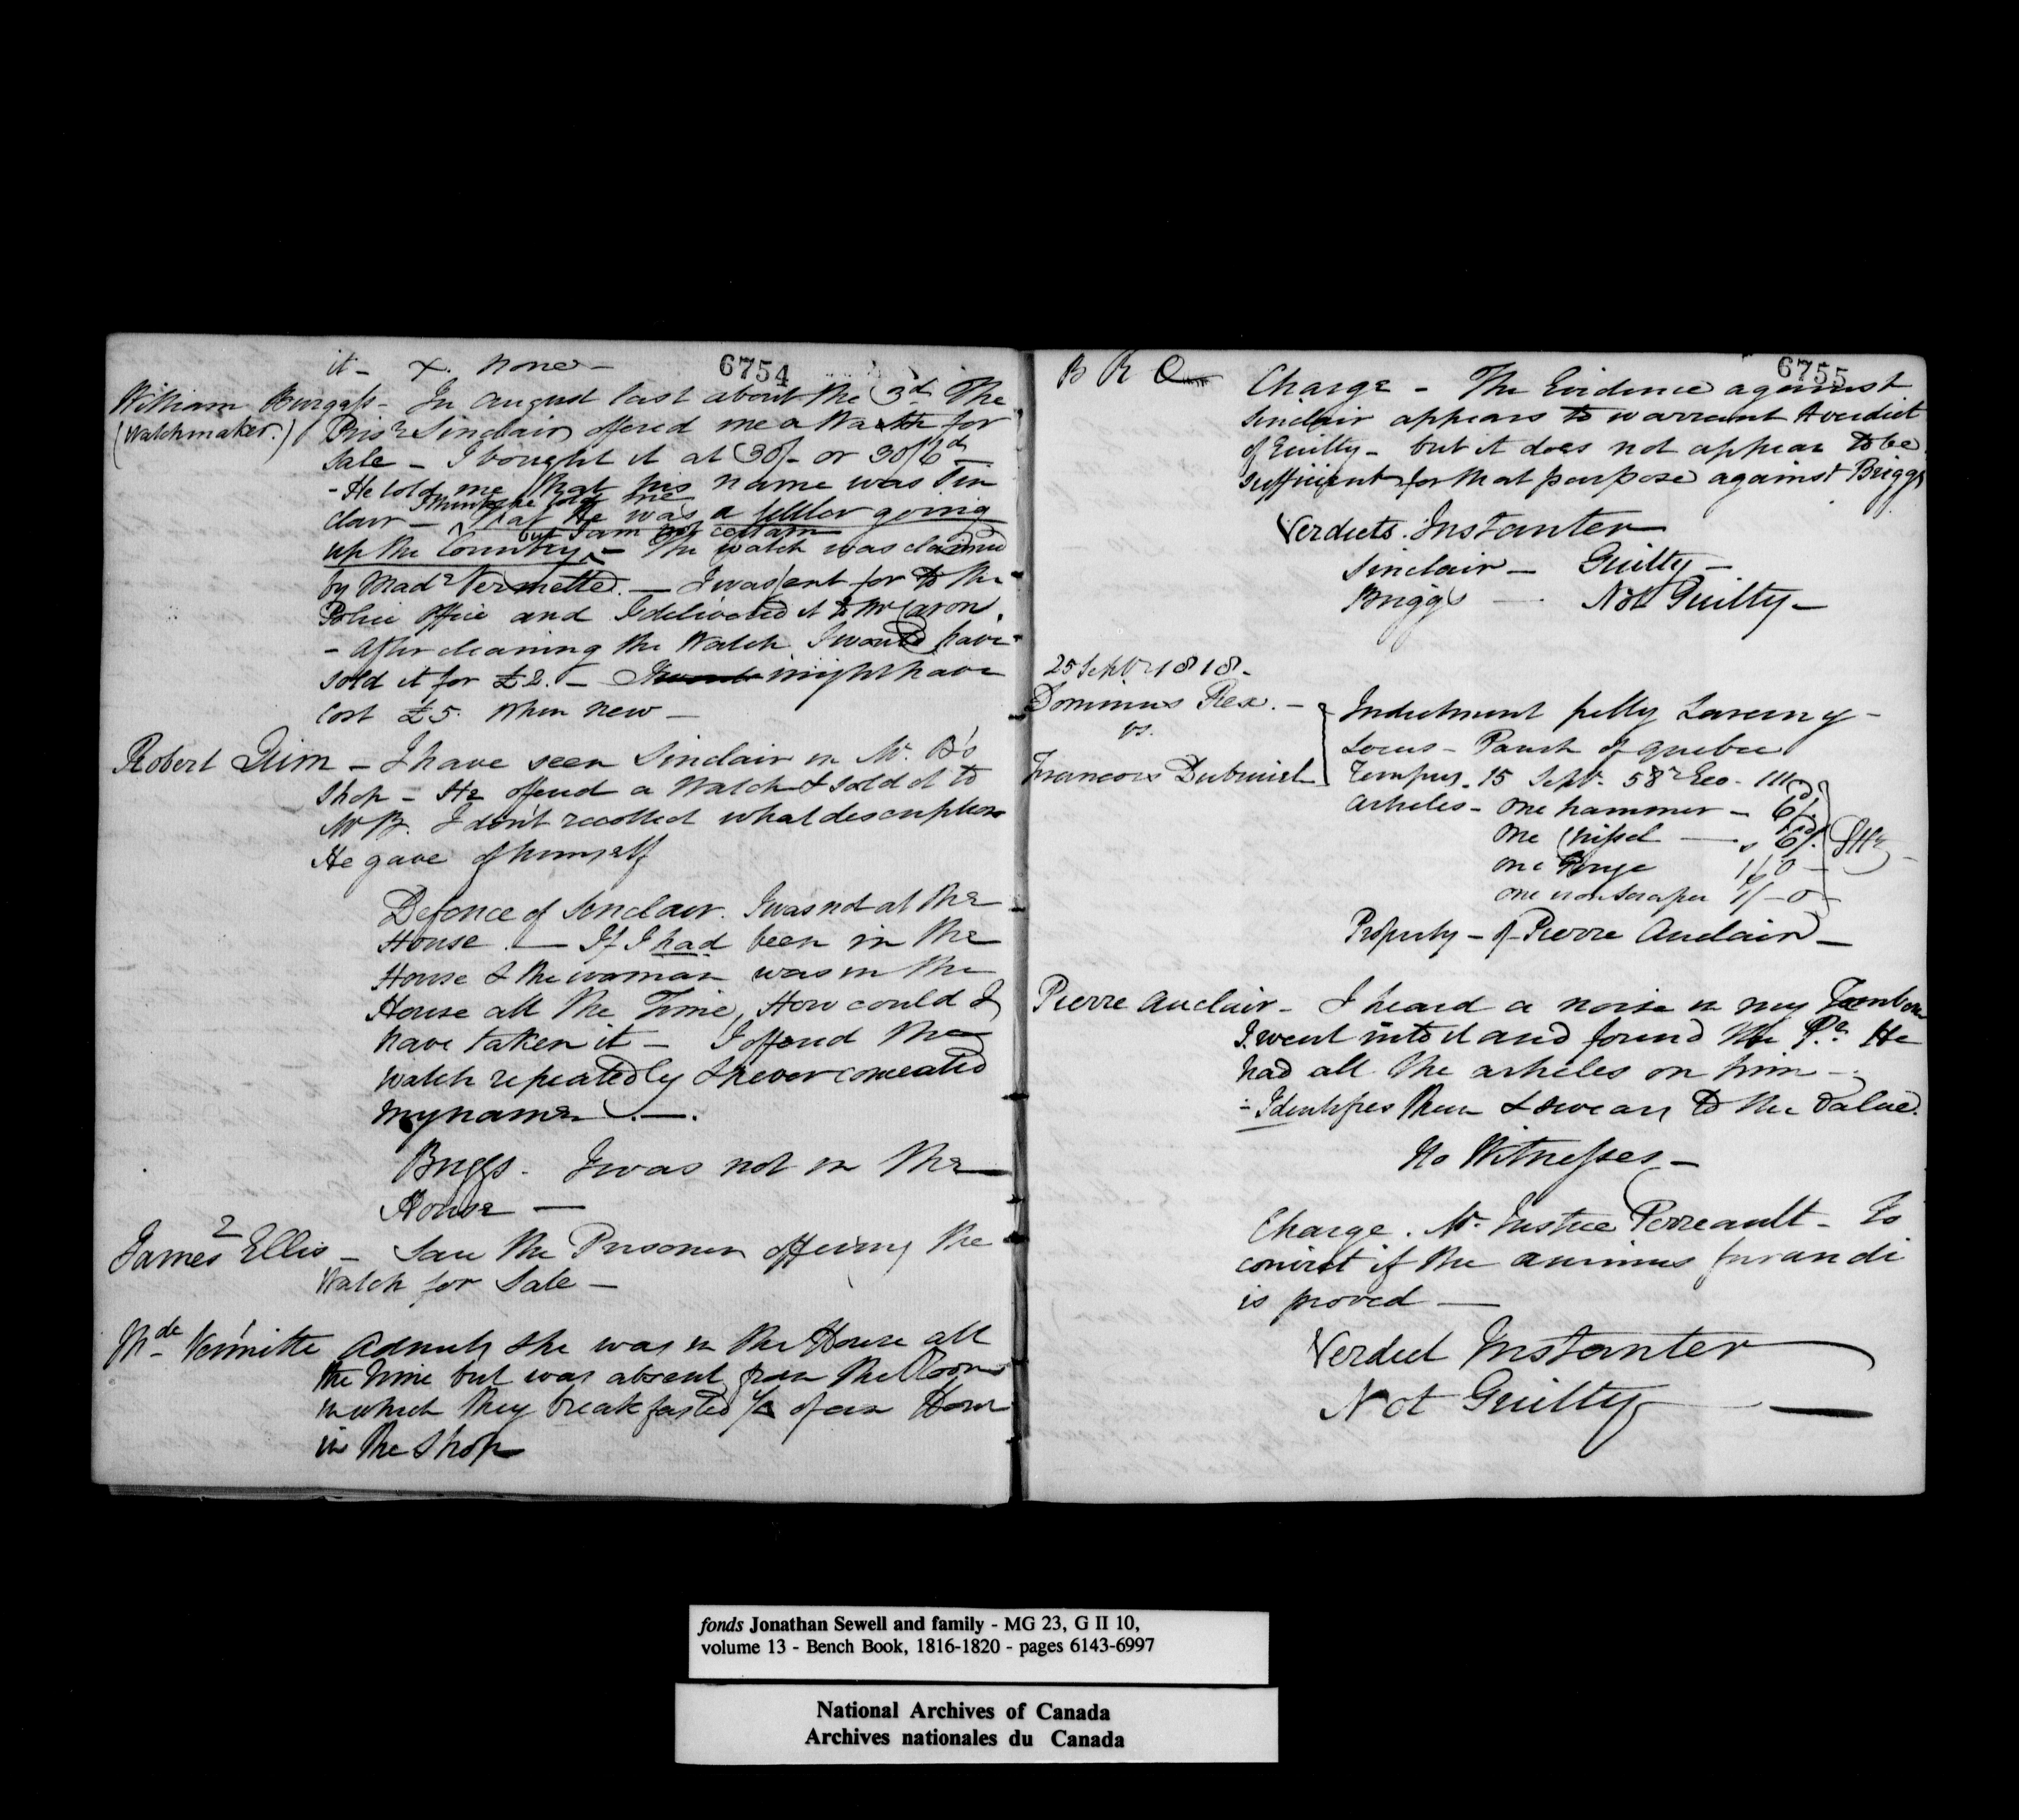 6754
it - X. none -
William Burgess - In August last about the 3d. The
(Watchmaker.) Prisr Sinclair offered me a Watch for
Sale - I bought it at 30/- or 30/6d -
- He told me that his name was Sin
I think he told me
clair - that He was a settler going
but I am not certain
up the Country. - The watch was claimed
by Made Vermette. - I was sent for to the
Police Office and I delivered it to Mr Caron.
- After cleaning the Watch I would have
sold it for £2. - might have
Cost £5. When new -
Robert - I have seen Sinclair in Mr. B's
Shop - He offered a Watch & sold it to
Mr B. I don't recollect what description
He gave of himself
Defence of Sinclair. I was not at the
House. - If I had been in the
House & the woman was in the
House all the Time, How could I
have taken it - I offered the
watch repeatedly & never concealed
my name. -.
Briggs. I was not in the
House -
2
James Ellis - Saw the Prisoner offering the
Watch for Sale -
1
Mde Vermitte Admits she was in the House all
the time but was absent from the Room
in which they breakfasted of an Hour
in the Shop
6755
B R Q
Charge - The Evidence against
Sinclair appears to warrant A verdict
of Guilty - but it does not appear to be
sufficient for that purpose against Briggs
Verdicts. Instanter
Sinclair - Guilty -
Briggs - Not Guilty -
25 Septr 1818 -
Dominus Rex. - Indictment petty Larceny -
vs. Locus - Parish of Quebec
Francois Tempus. 15 Septr. 58r Geo. III
Articles - One hammer - 6d/.
One Chissel - 6d/.
One Gouge 1/ 0 -
One iron Scraper 1/ - 0 -
Property - of Pierre Auclair -
Pierre Auclair - I heard a noise in my Tambour
I went into it and found the Pr. He
had all the articles on him -
- Identifies them & swears to the Value.
No Witnesses -
Charge. Mr. Justice Perreault - To
convict if the animus furandi
is proved -
Verdict Instanter
Not Guilty -
fonds Jonathan Sewell and family - MG 23, G II 10,
volume 13 - Bench Book, 1816-1820 - pages 6143-6997
National Archives of Canada
Archives nationales du Canada